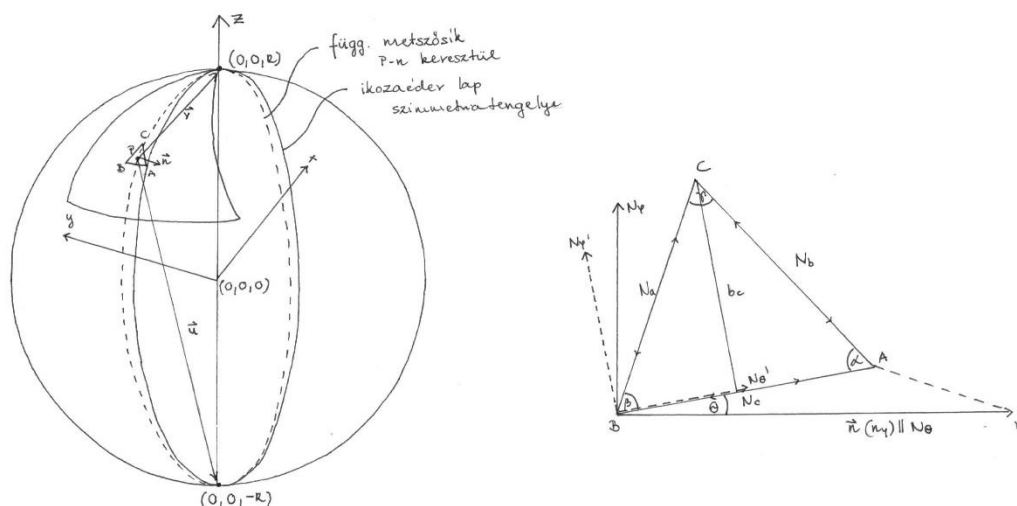 Z
(0,0,R)
függ. metszősík
P-n keresztül
ikozaéder lap
szimmetriatengelye
C
P
B
A
n
x
y
(0,0,0)
(0,0,-R)
C
γ
Nφ
Nφ'
Na
Nb
bc
α
A
β
Nθ'
Nc
θ
B
n (nγ) || Nθ